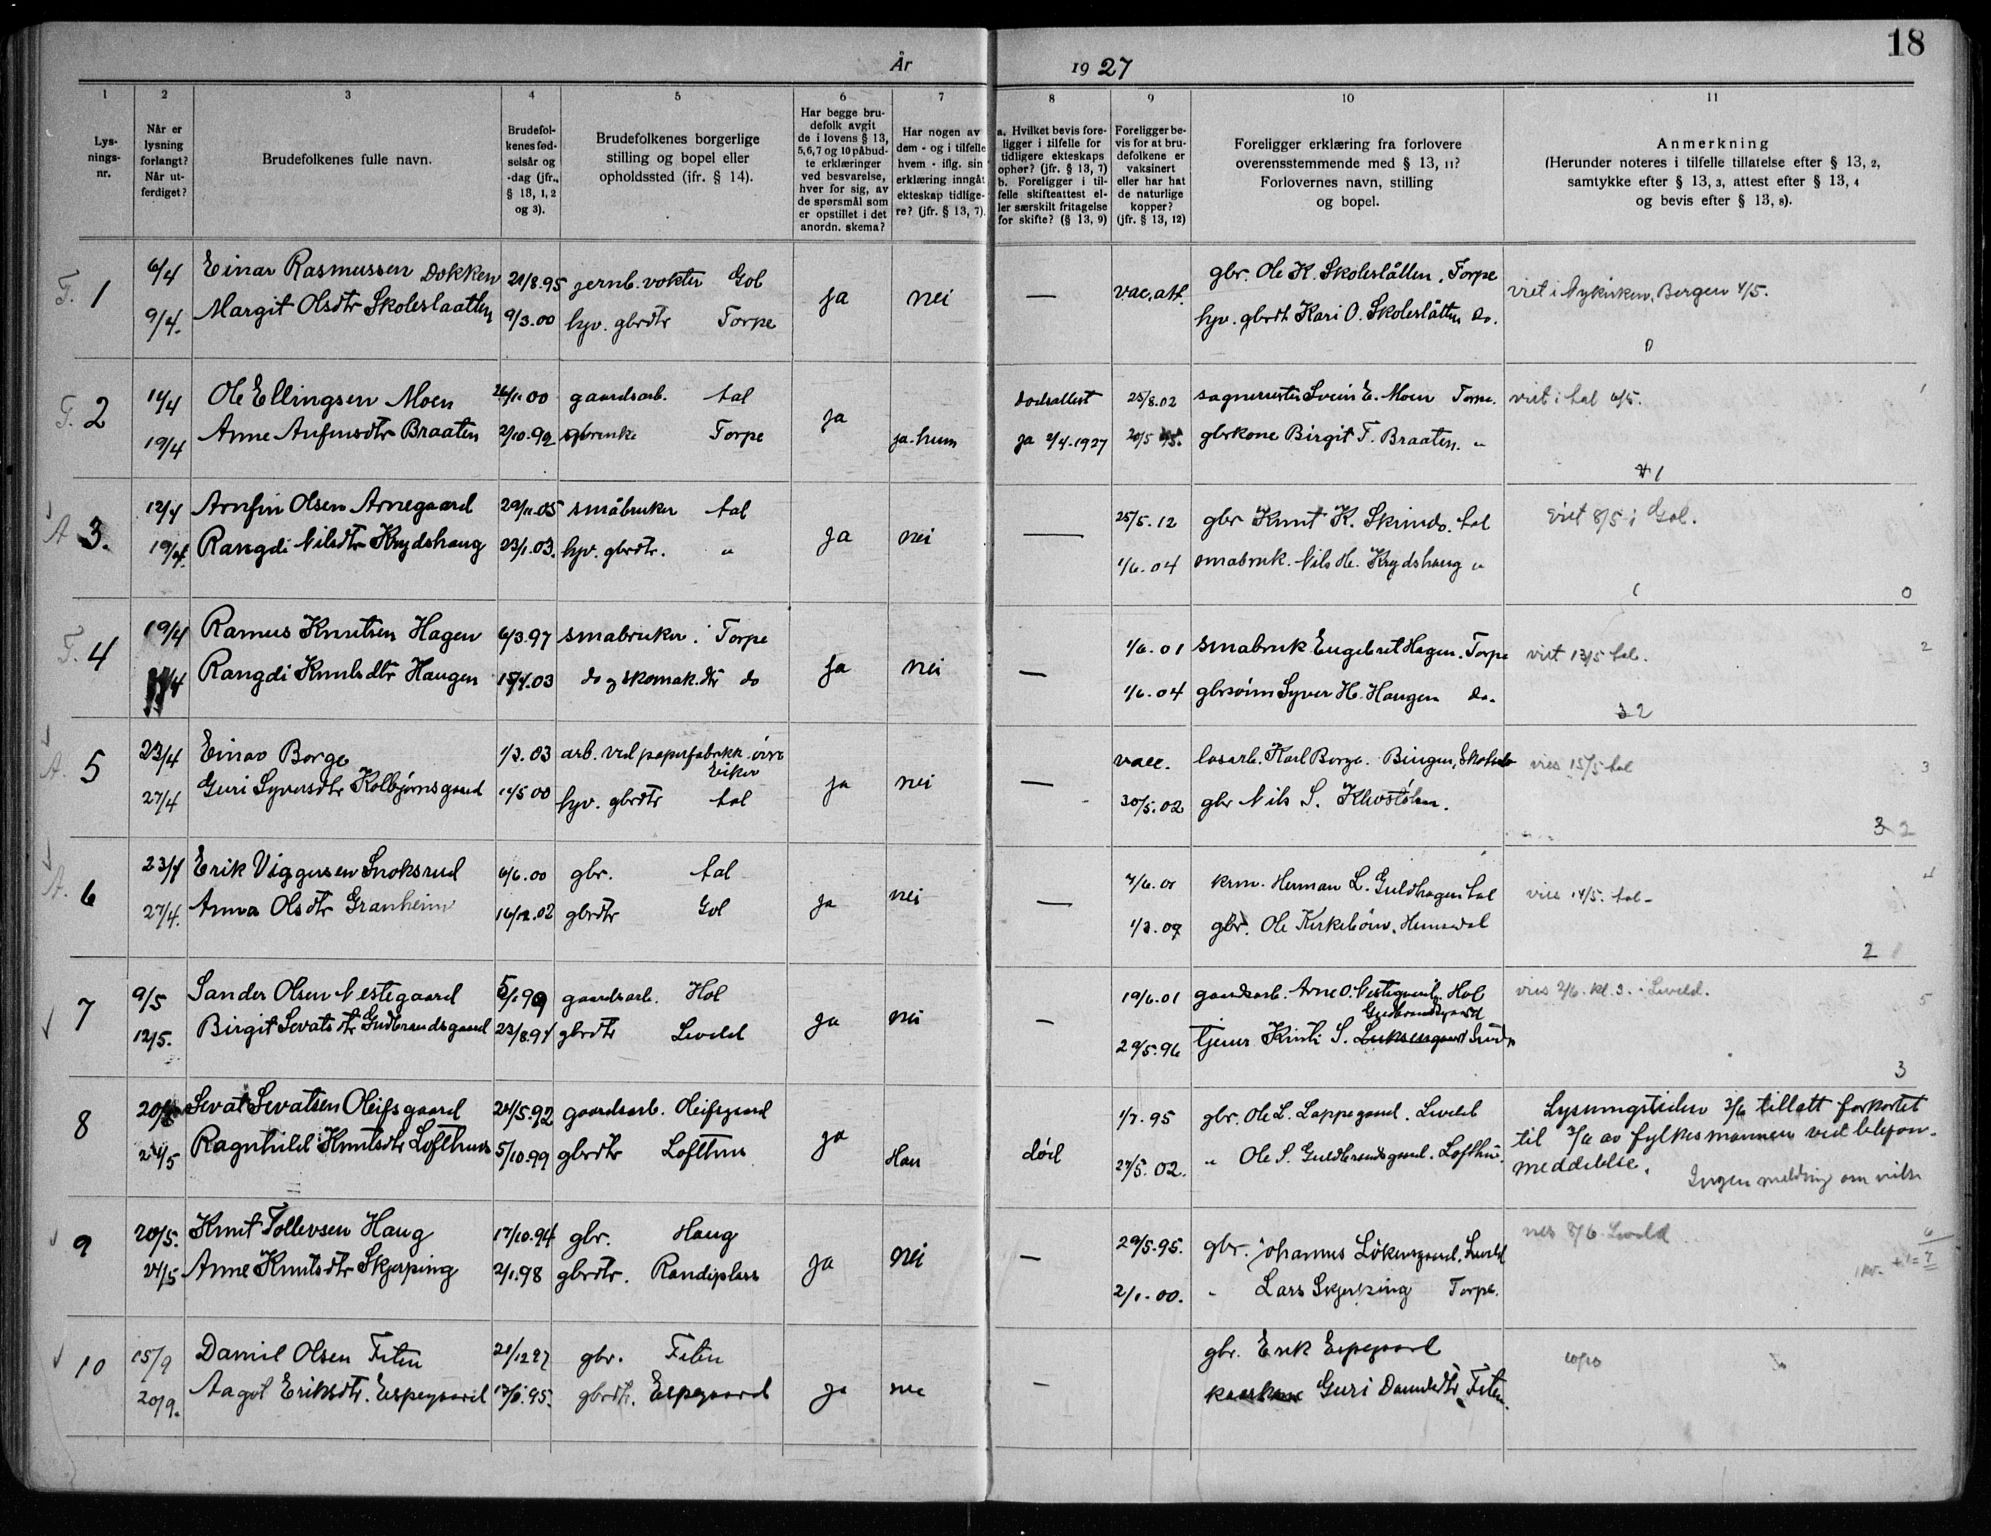 18
År 1927
1 2 3 4 5 6 7 8 9 10 11
Lys-
nings-
nr.
Når er
lysning
forlangt?
Når ut-
ferdiget?
Brudefolkenes fulle navn.
Brudefol-
kenes fød-
selsår og
-dag (jfr.,
§ 13, 1, 2
og 3).
Brudefolkenes borgerlige
stilling og bopel eller
opholdssted (jfr. § 14).
Har begge bru-
defolk avgit
de i lovens § 13,
5, 6, 7 og 10 påbud-
te erklæringer
ved besvarelse,
hver for sig, av
de spørsmål som
er opstillet i det
anordn. skema?
Har nogen av
dem - og i tilfelle
hvem - iflg. sin
erklæring inngåt
ekteskap tidlige-
re? (jfr. § 13, 7).
a. Hvilket bevis fore-
ligger i tilfelle for
tidligere ekteskaps
ophør? (jfr. § 13, 7)
b. Foreligger i til-
felle skifteattest el-
ler særskilt fritagelse
for skifte? (§ 13, 9)
Foreligger be-
vis for at bru-
defolkene er
vaksinert
eller har hat
de naturlige
kopper?
(jfr. § 13, 12)
Foreligger erklæring fra forlovere
overensstemmende med § 13, 11?
Forlovernes navn, stilling
og bopel.
Anmerkning
(Herunder noteres i tilfelle tillatelse efter § 13, 2,
samtykke efter § 13, 3, attest efter § 13, 4
og bevis efter § 13, 8).
T. 1 6/4 Einar Rasmussen Dokken 20/8.95 jernb.vokter Gol ja nei — vac.att. gbr. Ole K. Skoleslåtten, Torpe viet i Nykirken, Bergen 4/5.
9/4. Margit Olsdtr Skoleslaatten 9/3.00 hjv. gbrdtr Torpe hjv. gbrdtr Kari O. Skoleslåtten do.
0
T. 2 14/4 Ole Ellingsen Moen 26/1.00 gaardsarb. Aal ja dødsattest 25/8.02 sagmester Svein E. Moen Torpe. viet i Aal 6/5.
19/4 Anne Anfinsdtr Braaten 2/10.92 gbrenke Torpe ja-hun ja 2/4.1927 20/5 gbrkone Birgit T. Braaten. "
1
A 3. 12/4 Arnfin Olsen Arnegaard 29/11.05 småbruker Aal ja nei — 25/5.12 gbr Knut K. Skrindo. Aal Viet 8/5 i Gol.
19/4. Rangdi Nilsdtr Krydshaug 23/1.03. hjv. gbrdtr. " 1/6.04 smabruk. Nils H. Krydshaug "
0
T. 4 19/4 Ramus Knutsen Hagen 6/3.97 smabruker. Torpe ja nei — 1/6.01 smabruk Engebret Hagen. Torpe viet 13/5 Aal. 2
Rangdi Knutsdtr Haugen 15/4.03 do g skomak.dtr do 1/6.04 gbrsønn Syver H. Haugen do.
2
A. 5 23/4 Einar Borge 1/3.03 arb. ved papirfabrikk. øvre Eiker ja nei — vacc. losarb. Karl Borge. Bingen, viet 15/5 Aal 3
27/4 Guri Syversdtr Kolbjørnsgaard 14/5 00 hjv. gbrdtr Aal 30/5.02 gbr Nils S.
3 2
A. 6 23/4 Erik Viggosen Snoksrud 6/6.00 gbr. Aal ja nei — 7/6.01 krm. Herman L. Guldhagen Aal viet 14/5. Aal. 4
27/4. Anna Olsdtr Granheim 16/12.02 gbrdtr Gol 1/3.07 gbr. Ole Kirkebøen, Hemsedal
2
7 9/5 Sander Olsen Nestegaard 5/1.99 gaardsarb. Hol ja nei — 19/6.01 gaardsarb. Arne O. Nestegaard, Hol viet 2/6. kl. 3. i Leveld. 5
12/5. Birgit Sevatsdtr Gudbrandsgaard 23/8.97 gbrdtr Leveld 29/5.96 tjener Kristi S. Gudbrandsgaard
3
8 20/5 Sevat Sevatsen Oleifsgaard 24/5.92 gaardsarb. Oleifsgaard ja 1/7.95 gbr. Ole L. Lappegaard. Leveld Lysningstiden 3/6 tillatt forkortet
24/5 Ragnhild Knutsdtr Lofthus 5/10.99 gbrdtr Lofthus Han død 27/5.02. " Ole S. Guldbrandsgaard. Lofthus. til 3/6 av fylkesmannen ved telefon-
meddelelse.
Ingen melding om vielse
9 20/5. Knut Tollevsen Haug 17/10.94 gbr. Haug ja nei — 29/5.95. gbr. Johannes Løkensgaard, Leveld viet 8/6 Leveld 6
24/5 Anne Knutsdtr Skjerping 2/1.98 gbrdtr. Randiplass 2/1.00. " Lars Skjerping Torpe. +1= 7
10 15/9 Daniel Olsen Feten 21/12 97 gbr. Feten ja nei — gbr. Erik Espegaard 10/10
20/9. Aagot Eriksdtr. Espegaard gbrdtr. Espegaard Guri Danielsdtr. Feten.